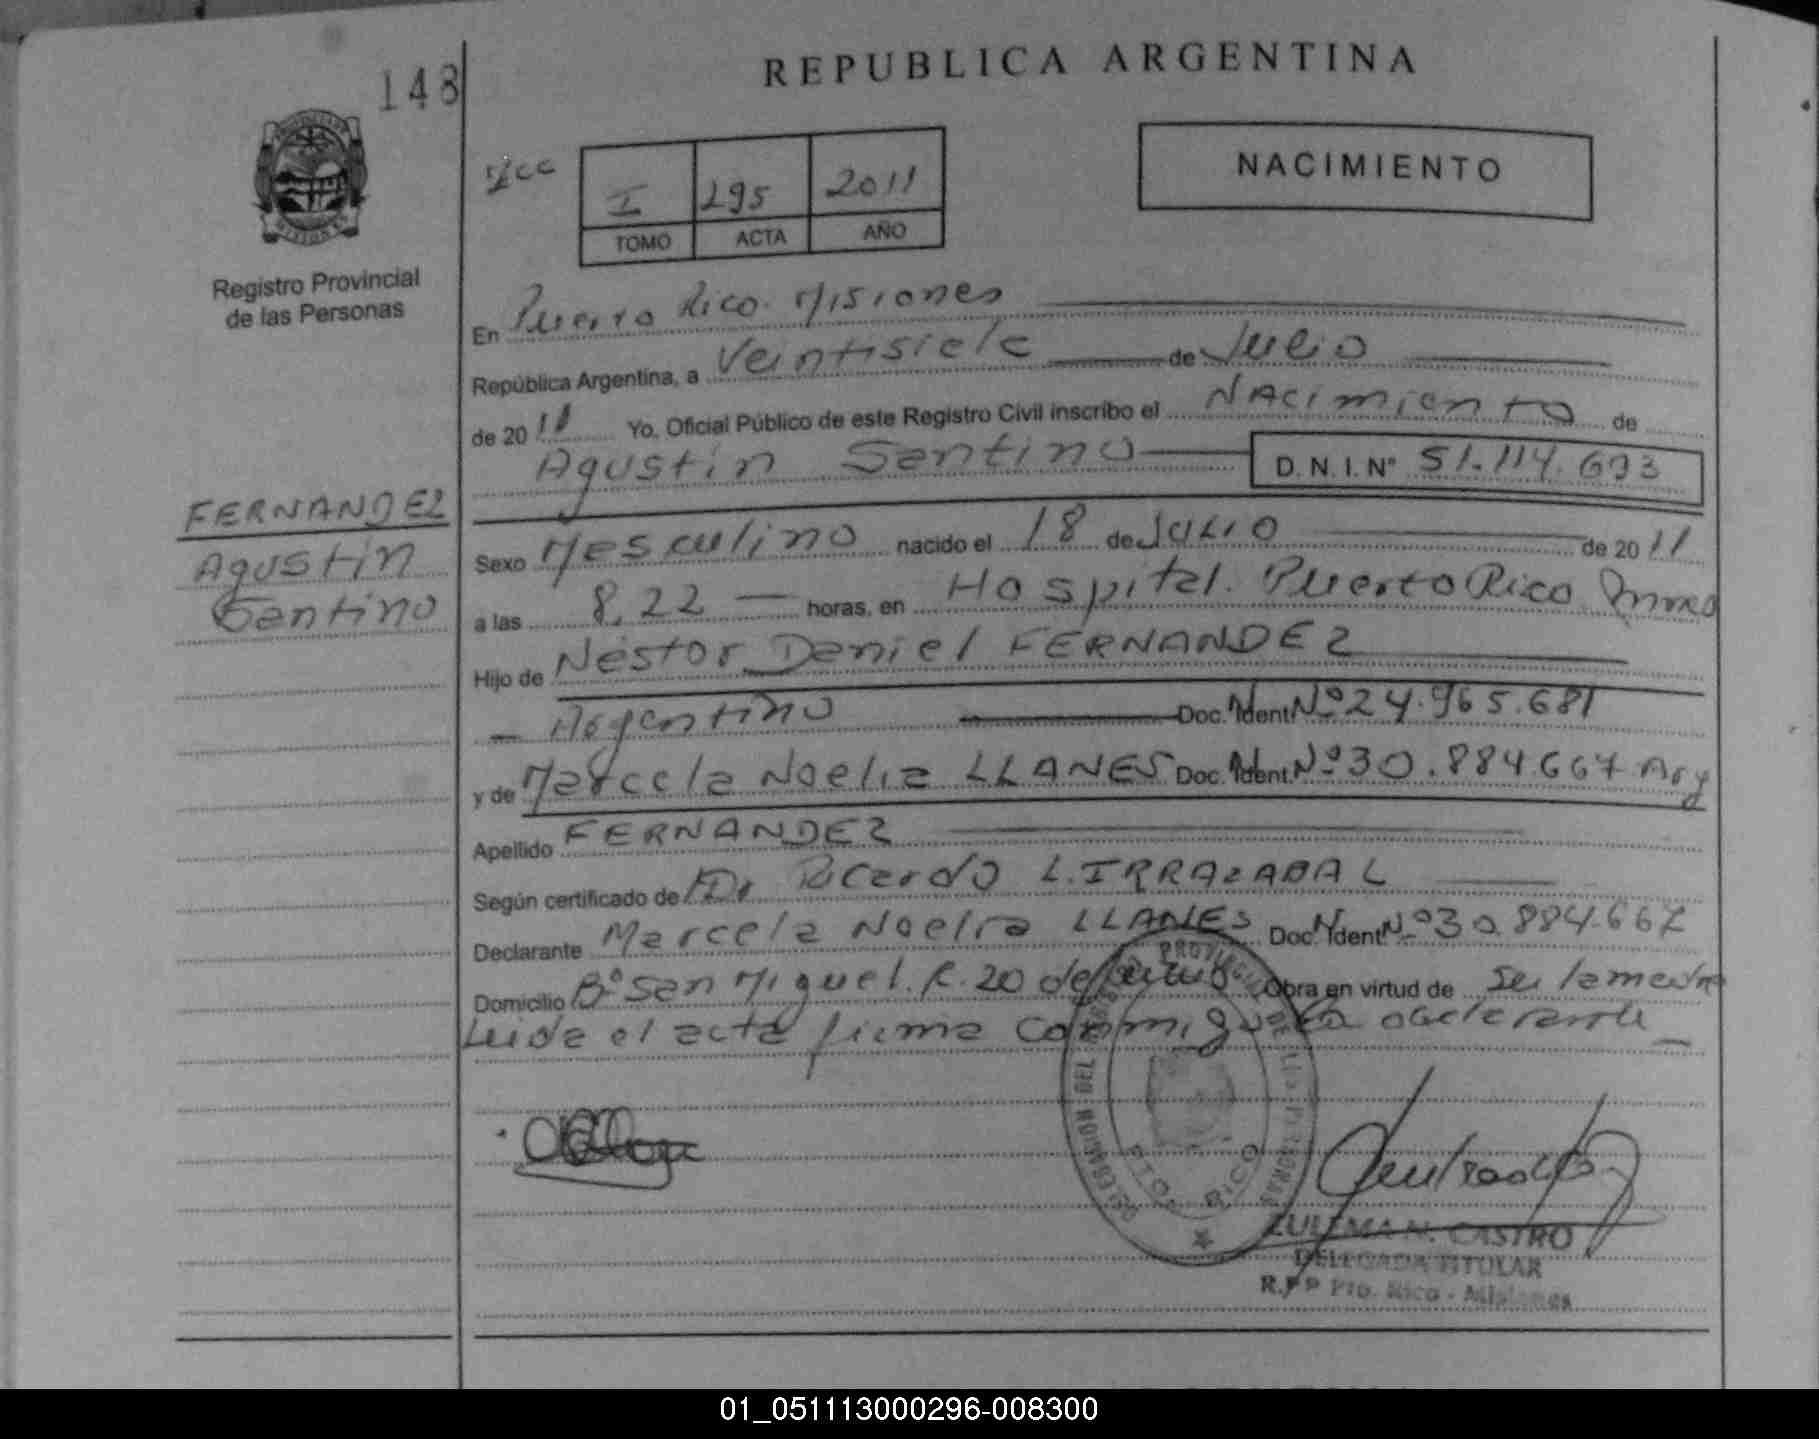 148
REPUBLICA ARGENTINA
NACIMIENTO
I 295 2011
TOMO ACTA AÑO
Registro Provincial
de las Personas
En Puerto Rico. Misiones
República Argentina, a Veintisiete de Julio
de 2011 Yo, Oficial Público de este Registro Civil inscribo el NACimiento de
Agustin Santino D.N.I.Nº 51.114.693
FERNANDEZ
Agustin
Santino
Sexo Masculino nacido el 18 de JULIO de 2011
a las 8,22 horas, en Hospital. Puerto Rico
Hijo de Néstor Daniel FERNANDEZ
Argentino Doc. Ident. Nº 24.965.681
y de Marcela Noelia LLANES Doc. Ident. Nº 30.884.667 Arg
Apellido FERNANDEZ
Según certificado de Dr Ricardo L. IRRAZABAL
Declarante Marcela Noelia LLANES Doc. Ident. Nº 30.884.667
Domicilio Bº San Miguel. R. 20 de Obra en virtud de Ser la madre
Leida el acta firma conmigo la declarante
PTO. RICO
ZULEMA N. CASTRO
DELEGADA TITULAR
R.P.P Pto. Rico - Misiones
01_051113000296-008300